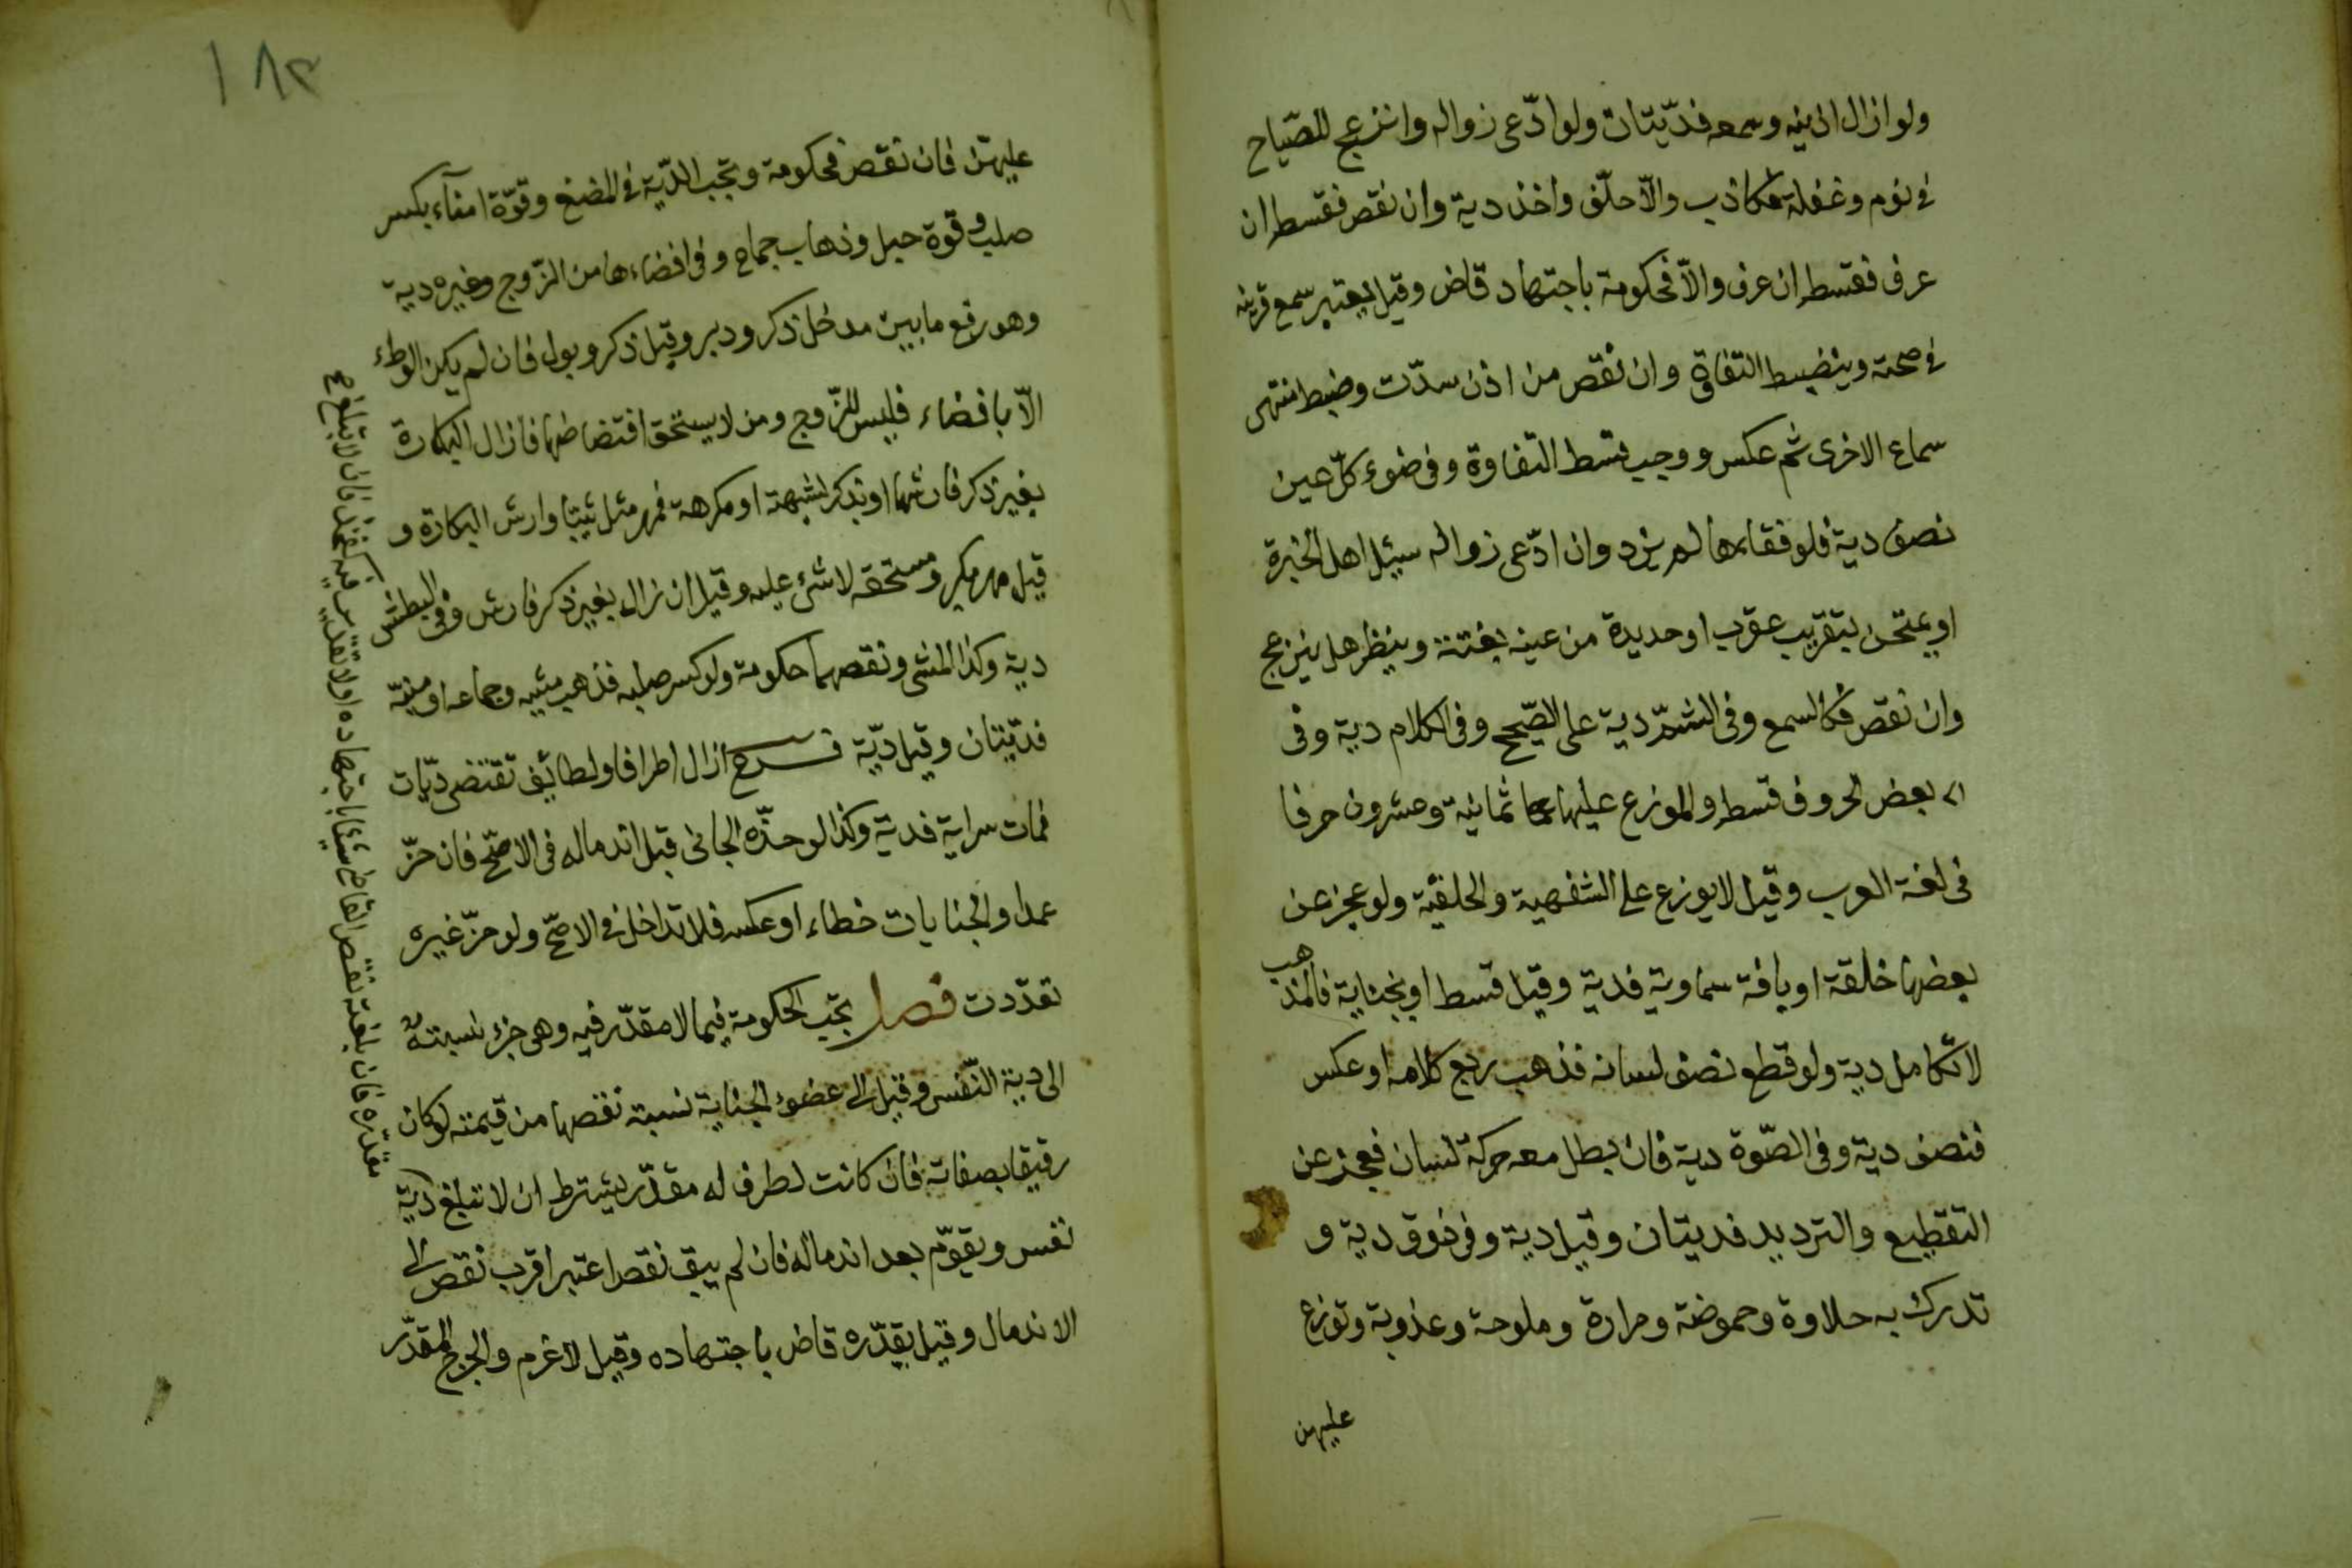 ولو ازال اذنيه وسمعه فدّيتان ولو ادّعى زواله وانزعج للصّياح
فى نوم وغفلة فكاذب والّا حلّف واخذ دية وان نقص فقسطه ان
عرف فقسطه ان عرف والّا فحكومة باجتهاد قاض وقيل يعتبر سمع قرينه
فى صحته ويضبط التفاوة وان نقص من اذن سدّت وضبط منتهى
سماع الاخرى ثم عكس ووجب قسط التفاوة وفى ضوء كلّ عين
نصف دية فلو فقاها لم يزد وان ادّعى زواله سيئل اهل الخبرة
او يمتحن بتقريب عقرب او حديدة من عينه بغتة وينظر هل ينزعج
وان نقص فكالسمع وفى الشمّ دية على الصّحيح وفى الكلام دية وفى
بعض الحروف قسطه والموزع عليها ثمانية وعشرون حرفا
فى لغة العرب وقيل لا يوزع على الشفهية والحلقية ولو عجز عن
بعضها خلقة او بافة سماوية فدية وقيل قسط او بجناية فالمذهب
لا تكامل دية ولو قطع نصف لسانه فذهب ربع كلامه او عكس
فنصف دية وفى الصّوة دية فان بطل معه حركة لسان فعجز عن
التقطيع والترديد فديتان وقيل دية وفى ذوق دية و
تدرك به حلاوة وحموضة ومرارة وملوحة وعذوبة وتوزع
عليهن
١٨٣
عليهنّ فان نقص فحكومة وتجب الدّية فى المضغ وقوّة امناء بكسر
صلب وقوة حبل وذهاب جماع وفى افضاءها من الزّوج وغيره دية
وهو رفع ما بين مدخل ذكر ودبر وقيل ذكر وبول فان لم يكن الوطء
الّا بافضاء فليس للزّوج ومن لا يستحق افتضاضها فازال البكارة
بغير ذكر فارشها او بذكر لشبهة او مكرهة فمهر مثل ثيبا وارش البكارة و
قيل مهر بكر ومستحقه لا شئ عليه وقيل ان زال بغير ذكر فارش وفى البطش
دية وكذا المشى ونقصهما حكومة ولو كسر صلبه فذهب مشيه وجماعه او منيّه
فدّيتان وقيل دّية فرع ازال اطرافا ولطائف تقتضى ديّات
فمات سراية فدية وكذا لو حذّه الجانى قبل اندماله فى الاصّح فان حزّ
عمدا والجنايات خطاء او عكسه فلا تداخل فى الاصّح ولو حزّ غيره
تعدّدت فصل تجب الحكومة فيما لا مقدّر فيه وهى جزء نسبته
الى دية النّفس وقيل الى عضو الجناية نسبة نقصها من قيمته لو كان
رقيقا بصفاته فان كانت لطرف له مقدّر يشترط ان لا تبلغ دية
نفس ويقوّم بعد اندماله فان لم يبق نقص اعتبر اقرب نقص الى
الاندمال وقيل يقدّره قاض باجتهاده وقيل لا غرم والجرح المقدّر
مقدّره فان بلغته نقص القاضى شيئا باجتهاده او لا تقدير فيه كفخذ فان لا تبلغ